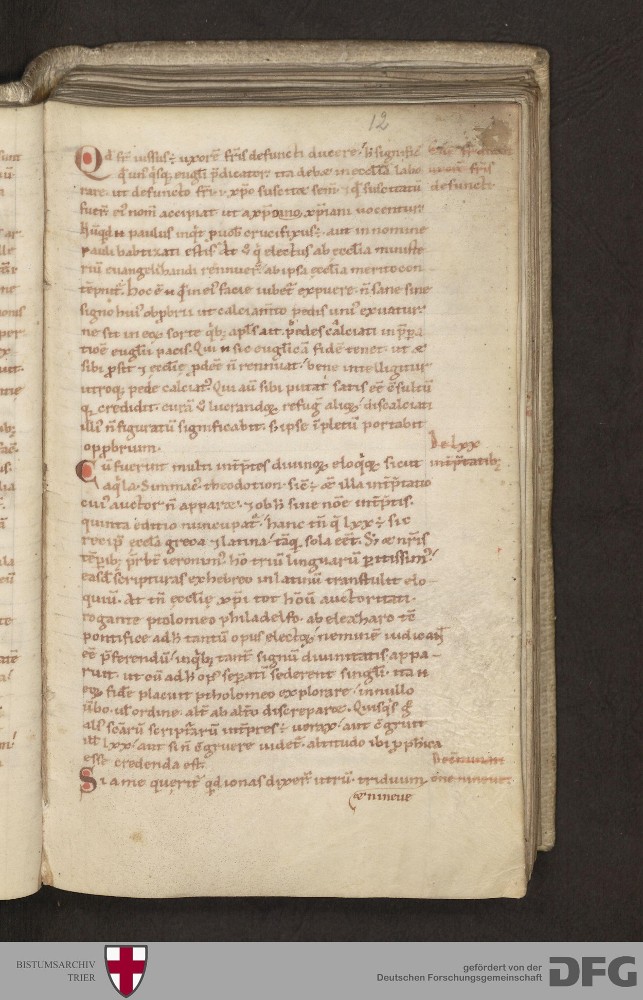 12
Qd frī iussus ē uxorē fr̄is defuncti ducere. h̄ significat
qd unusq̄sq euḡlii p̄dicator ita debet in eccl̄ia labo
rare. ut defuncto fr̄i. i. xp̄o suscitet semen. & q̄ suscitatus
fuerit ei nom̄ accipiat ut a xp̄o xp̄iani vocentur
paulus inq̄t p uob crucifixus ē. aut in nomine
pauli babtizati estis. At ū q̄ electus ab eccl̄ia ministe
riū euangelizandi rennuerit ab ipsa eccl̄ia merito con
tēpnit̄. Hoc ē n̄ qd in ei facie iubet̄ expuere. n̄ sane sine
signo hui obp̄brii ut calciamto pedis uni exuatur.
ne sit in eorū sorte q̄b apl̄s ait. pedes calciati in p̄para
tiōe euḡlii pacis. Qui n̄ sic euḡlicā fidē tenet. ut &
sibi p̄sit & eccl̄ie p̄desse n̄ rennuat. bene intelligitur
utroq pede calciat. Qui aū sibi putat satis eē c̄sultū
q̄ credidit. curā ū lucrandorū refugit alioꝝ. discalciati
illi n̄ figuratū significabit. s; ipse īpletū portabit
opprobrium.
De lxx
int̄p̄tatib;
Cū fuerint multi int̄p̄tes divinoꝝ eloq̄oꝝ. sicut
aq̄la. Summac. theodotion. sic ē & illa int̄p̄tatio
cui auctor n̄ apparet. & ob h̄ sine noīe int̄p̄tis.
quinta editio nuncupat̄. hanc tn̄ q̄ lxx ē sic
recip̄ eccl̄a greca & latina. taq̄ sola eēt. S; & nr̄is
tēpib. p̄rbt̄ ieronim. hō triū linguarū peritissim.
easdē scripturas ex hebreo in latinū transtulit elo
quiū. At tn̄ eccl̄ie xp̄i tot hōū auctoritati.
rogante ptolomeo philadelfo. ab eleazharo tē
pontifice ad h̄ tantū opus electoꝝ. neminē iudicat
eē p̄ferendū. in q̄b tant signū divinitatis appa-
ruit. ut cū ad h̄ op sepati sederent singuli. ita ut
eoꝝ fidē placuit ptholomeo explorare. in nullo
ūbo. ul ordine. alt̄ ab alt̄o discreparet. Quisq̄s ḡ
alī scārū scripturārū int̄pres ē verax. aut c̄gruit
illi lxx. aut si n̄ c̄gruere videt̄. altitudo ibi pphetica
esse credenda est.
Si a me querit̄ qd ionas dixerit utrū. triduum
& nineve
BISTUMSARCHIV
TRIER
gefördert von der
Deutschen Forschungsgemeinschaft
DFG